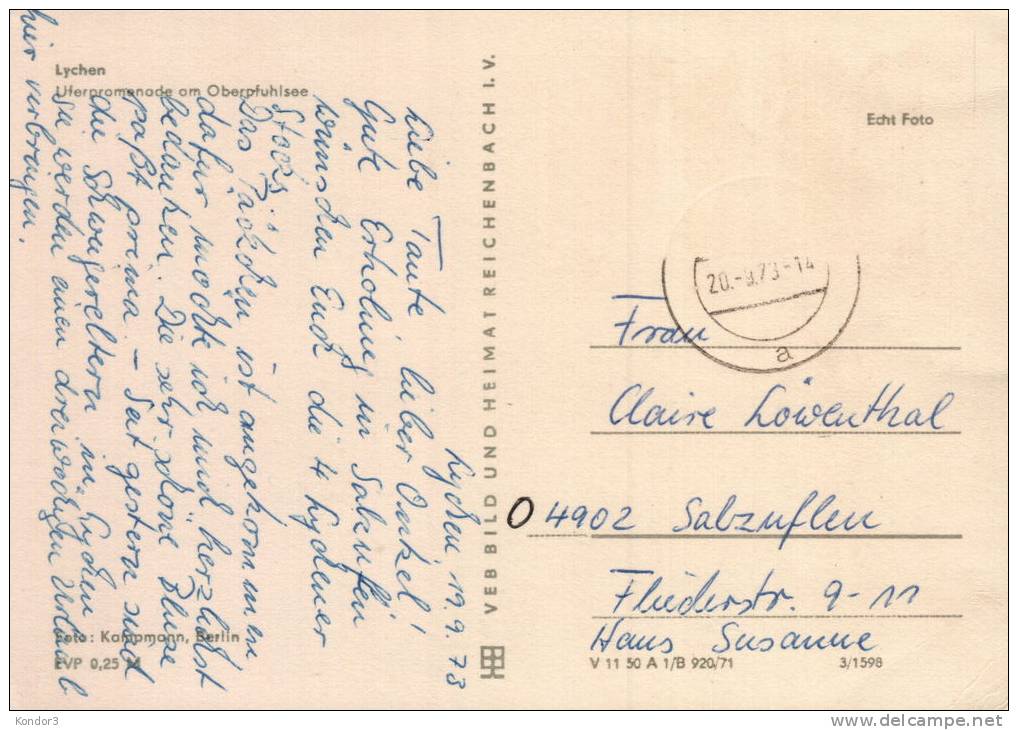 Lychen
Uferpromenade am Oberpfuhlsee
Echt Foto
VEB BILD UND HEIMAT REICHENBACH I. V.
Lychen, 19. 9. 73
Liebe Tante, lieber Onkel!
Gute Erholung in Salzuflen
wünschen Euch die 4 Lychener
Das Päckchen ist angekommen
dafür möchte ich mich herzlichst
bedanken. Die sehr schöne Bluse
paßt prima. – Seit gestern sind
die Schwiegereltern in Lychen
sie werden einen dreiwöchigen Urlaub
hier verbringen.
20.-9.73-14
a
Frau
Claire Löwenthal
O 4902 Salzuflen
Fliederstr. 9-11
Haus Susanne
Foto: Kampmann, Berlin
EVP 0,25 M
V 11 50 A 1/B 920/71
3/1598
Kondor3
http://www.delcampe.net